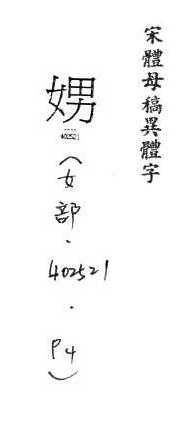 宋體母稿異體字
娚
402521
（女部．402521．P4）